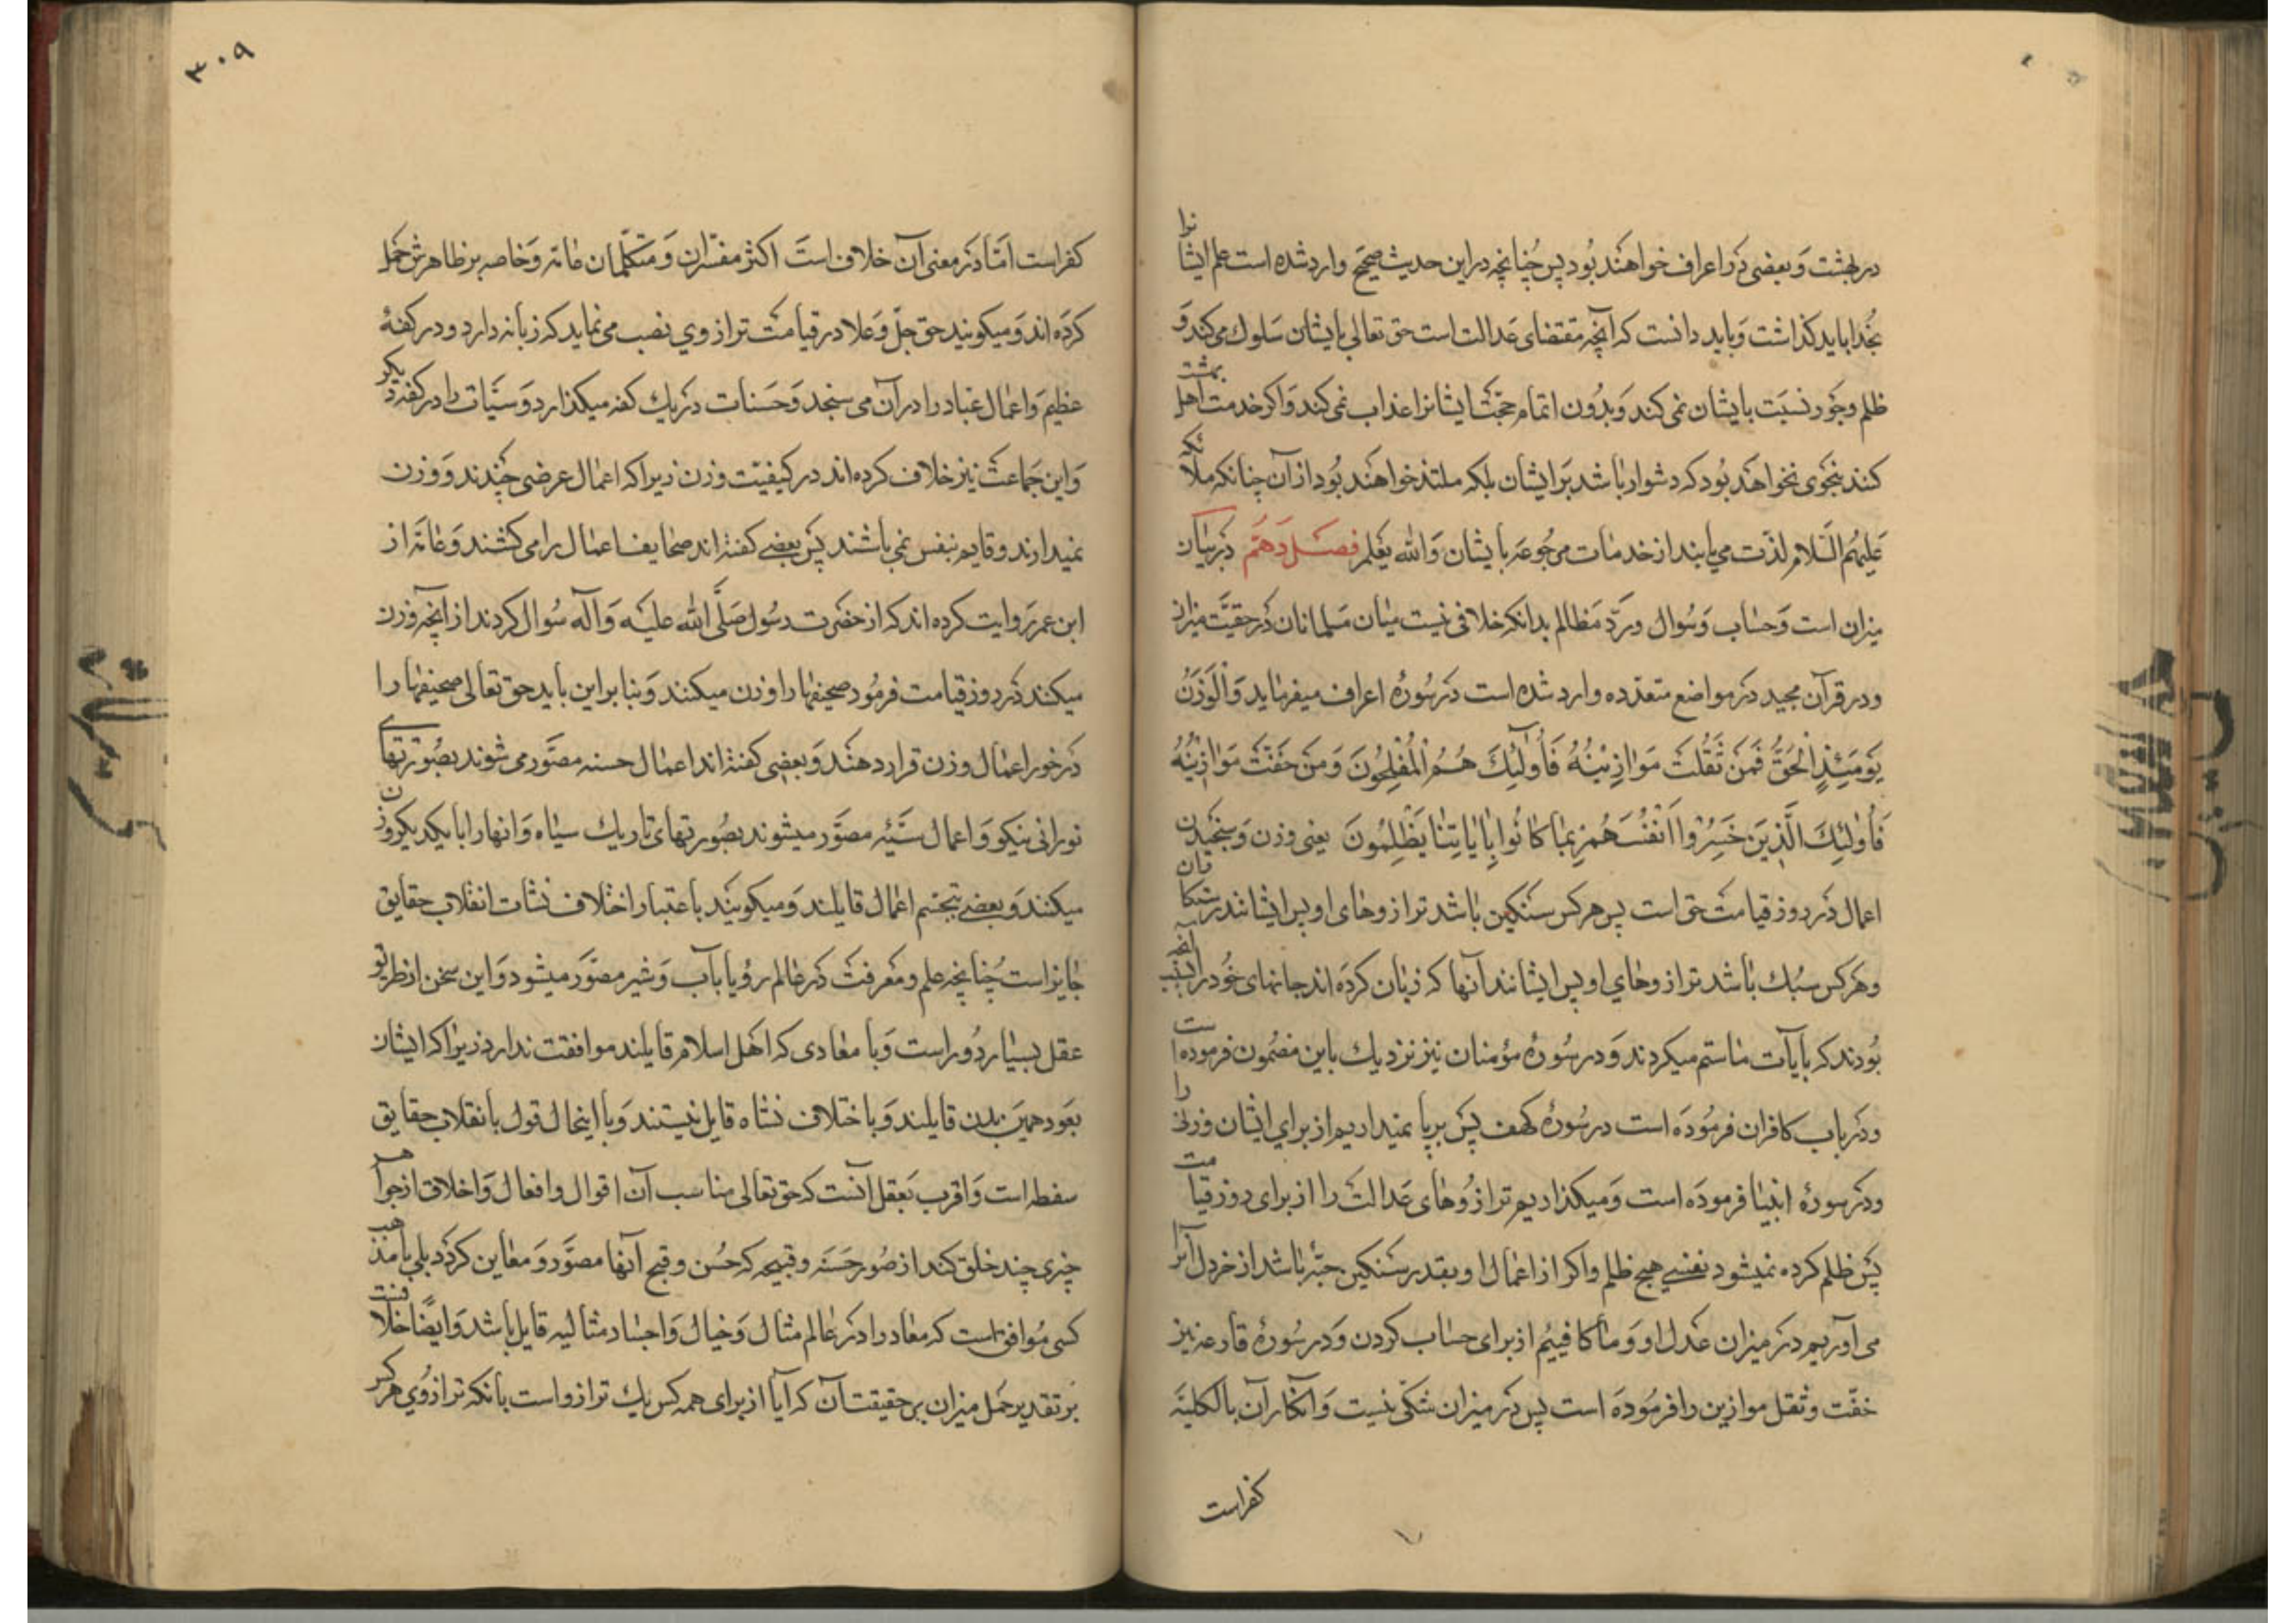 در بهشت وَبعضی دَر اعراف خواهَند بُود پس چُنانچه در این حدیث صحیح وارد شده است علم ایشانرا
بخُدا باید کذاشت وَباید دانست که آنچه مقتضای عَدالت است حق تعالی بایشان سَلوك می کند وَ
ظلم وجَور نسبَت بایشان نمی کند وَبدُون اتمام حجّت ایشانرا عذاب نمی کند وَاکر خدمت اَهل بهشت
کنند بنحوی نخواهَد بُود که دشوار باشد بَر ایشان بلکه ملتذ خواهَند بُود از آن چنانکه ملائکه
عَلیهمُ السَّلام لذّت می یابند از خدمات مرجُوعَه بایشان وَالله یعَلم فصَل دَهمّ دَر بیان
میزان است وَحسَاب وَسُوال وردّ مَظالم بدانکه خلافی نیست میَان مسَلمانان دَر حقیَّت میزان
ودر قرآن مجید دَر مواضع متعدّده وارد شده است دَر سُورۀ اعراف میفرماید وَالْوَزنُ
یَومَئِذٍ الْحَقُّ فَمَن ثَقُلَت مَوازِیْنُهُ فَأُولئِكَ هُمُ الْمُفْلِحُونَ وَمَن خَفَّت مَوازِینُهُ
فَأُولئِكَ الَّذِینَ خَسِرُوا اَنْفُسَهُمْ بِمَا کانُوا بِآیاتِنَا یَظْلِمُونَ یعنی وزن وَسنجیدن
اعمال دَر روز قیامت حق است پس هرکس سَنکین باشد ترازوهای او پس ایشانند رستکاران
وهَرکس سبُك باشد ترازوهای او پس ایشانند آنها که زیان کردَه اند جانهای خُود را بسبب آنچه
بُودند که بآیات ما ستم میکردند وَدر سُورۀ مؤمنان نیز نزدیك باین مضمُون فرموده است
ودَر باب کافران فرمُودَه است در سُورۀ کهف پسَ بر پا نمیداریم از برای ایشان وزن را
ودَر سورۀ انبیا فرمودَه است وَمیکذاریم ترازوُهای عَدالت را از برای روز قیامت
پسَ ظلم کرده نمیشود نفسی هیچ ظلم واکر از اعمال او بقدر سَنکینی حبّۀ باشد از خردل آنرا
می آوریم دَر میزان عَدل او وَما کافییم از برای حساب کردن وَدر سُورۀ قارعه نیز
خفّت وثقل موازین را فرمُودَه است پس دَر میزان شکی نیست وَانکار آن بالکلیَّه
کفر است
۳۰۹
کفر است امّا دَر معنی آن خلاف است اکثر مفسّران وَمتکلّمان عامّه وَخاصه بر ظاهرش حمَل
کردَه اند وَمیکویند حق جلّ وَعلا در قیامت ترازوی نصب می نماید که زبانه دارد ودر کفۀ
عظیم وَاعمال عبَاد را در آن می سنجد وَحَسَنات دَر یك کفه میکذارد وَسیّئات را در کفه دیکر
وَاین جَماعت نیز خلاف کرده اند در کیفیّت وزن زیرا که اعمال عرضی چَندند وَوزن
نمیدارند وقایم بنفس نمی باشند پسَ بعضی کفته اند صحایف اعمال را می کشند وَعامّه از
ابن عمر رَوایت کرده اند که از حضَرت رسُول صَلَّی الله عَلیَه وَآله سُوال کردند از آنچه وزن
میکنند دَر روز قیامت فرمُود صحیفها را وزن میکنند وَبنابر این باید حق تعالی صحیفها را
دَر خور اعمال وزن قرار دهند وَبعضی کفته اند اعمال حسنه مصوَّر می شوند بصُورتهای
نورانی نیکو وَاعمال سَیّئه مصوَّر میشوند بصُورتهای تاریك سیاه وَانها را با یکدیکر وزن
میکنند وَبعضی بتجسّم اعمال قایلند وَمیکویند باعتبار اختلاف نشأت انقلاب حقایق
جایز است چُنانچه علم ومَعرفت دَر عالم رؤیا بآب وَشیر مصوَّر میشود وَاین سخن از طریق
عقل بسیار دُور است وَبا معادی که اَهل اسلام قایلند موافقت ندارد زیرا که ایشان
بعَود همیَن بدن قایلند وَباختلاف نشاه قایل نیستند وَبا اینحال قول بانقلاب حقایق
سفطه است وَاقرب بعَقل آنست که حق تعالی مناسب آن اقوال وافعال وَاخلاق از جواهر
چیزی چند خلق کند از صُور حَسَنَه وقبیحه که حُسن وقبح آنها مصوَّر وَمعاین کردد بلی با مذهب
کسی مُوافق است که معاد را دَر عالم مثال وَخیال وَاجساد مثالیه قایل باشد وَایضًا خلافست
بَر تقدیر حمَل میزان بر حقیقت آن که آیا از برای همه کس یك ترازو است یا آنکه ترازوُی هرکس